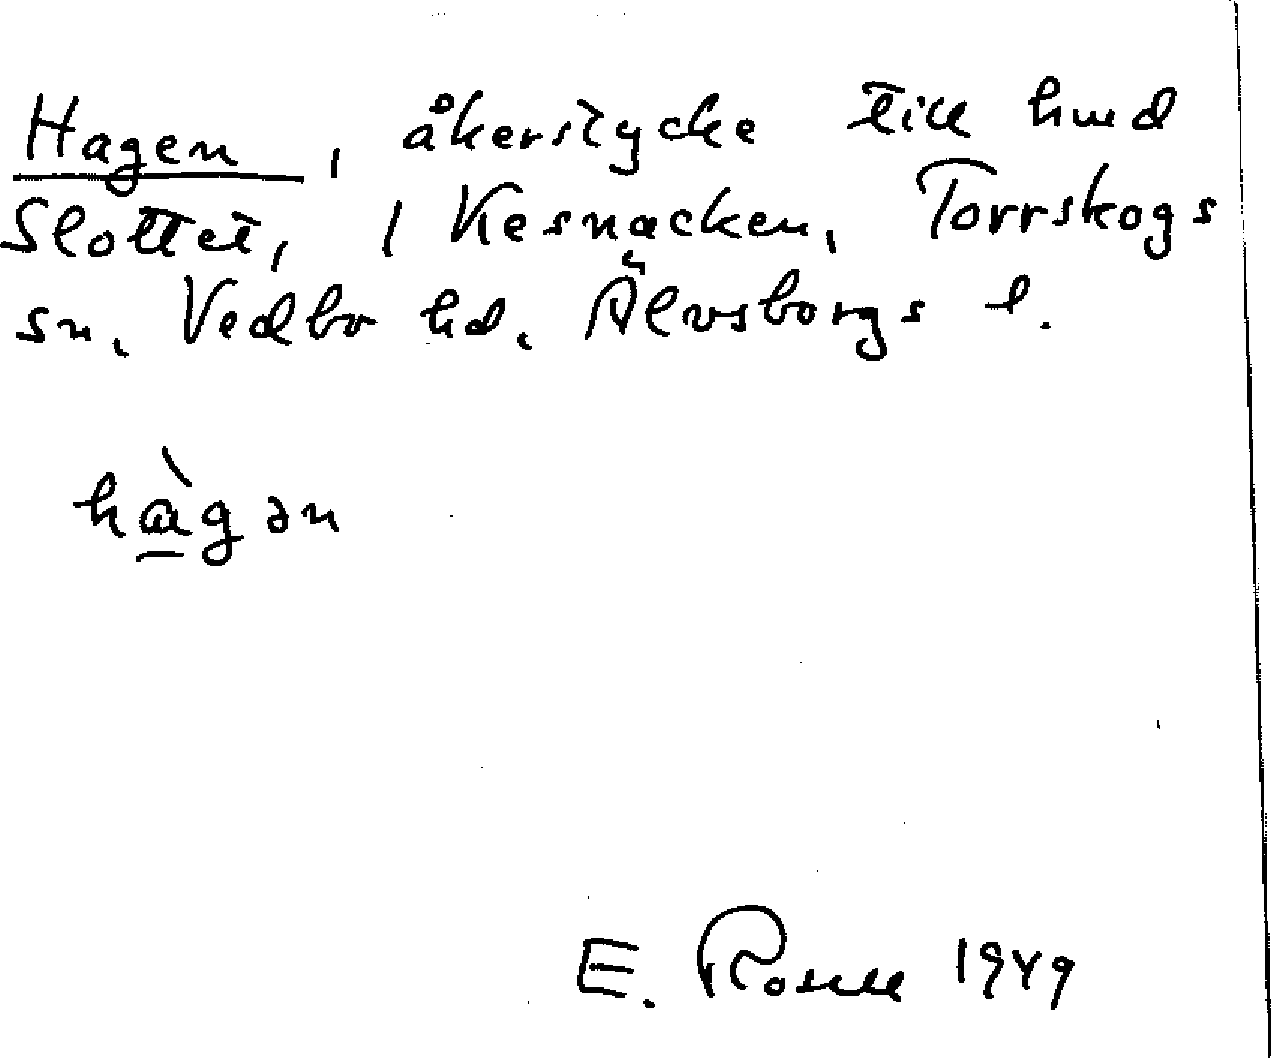 Hagen, åkerstycke till hmd
Slottet, / Kesnacken, Torrskogs
sn, Vedbo hd, Älvsborgs l.
hàgən
E. Rosell 1949